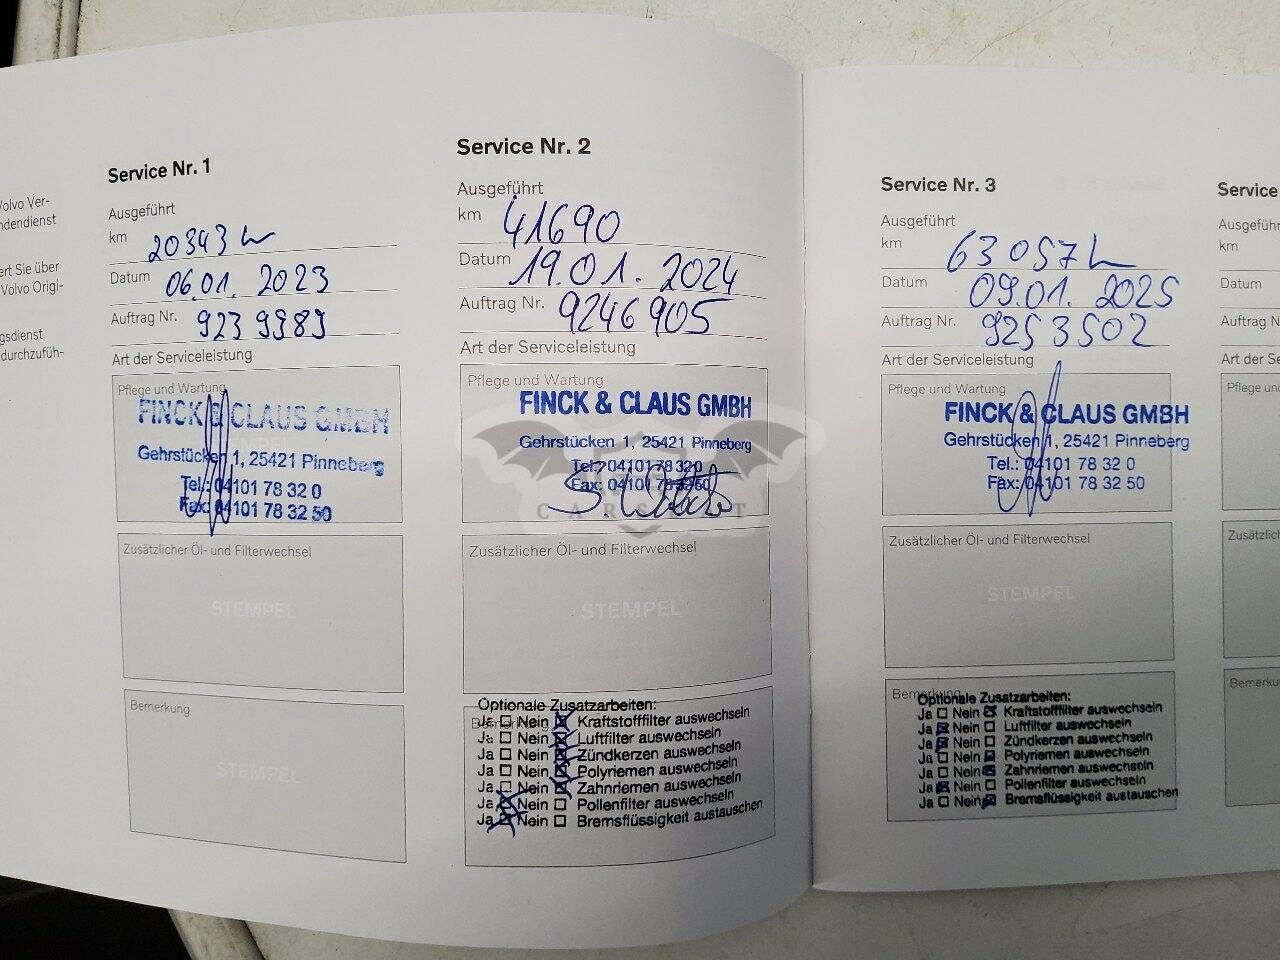 Volvo Ver-
ndendienst
ert Sie über
Volvo Origi-
gsdienst
durchzufüh-
Service Nr. 1
Ausgeführt
km 20343 km
Datum 06.01. 2023
Auftrag Nr. 9239989
Art der Serviceleistung
Pflege und Wartung
FINCK & CLAUS GMBH
Gehrstücken 1, 25421 Pinneberg
Tel.: 04101 78 32 0
Fax: 04101 78 32 50
Zusätzlicher Öl- und Filterwechsel
STEMPEL
Bemerkung
STEMPEL
Service Nr. 2
Ausgeführt
km 41690
Datum 19.01. 2024
Auftrag Nr. 9246905
Art der Serviceleistung
Pflege und Wartung
FINCK & CLAUS GMBH
Gehrstücken 1, 25421 Pinneberg
Tel.: 04101 78 32 0
Fax: 04101 78 32 50
Zusätzlicher Öl- und Filterwechsel
STEMPEL
Bemerkung
Optionale Zusatzarbeiten:
Ja ☐ Nein ☒ Kraftstofffilter auswechseln
Ja ☐ Nein ☒ Luftfilter auswechseln
Ja ☐ Nein ☒ Zündkerzen auswechseln
Ja ☐ Nein ☒ Polyriemen auswechseln
Ja ☐ Nein ☒ Zahnriemen auswechseln
Ja ☒ Nein ☐ Pollenfilter auswechseln
Ja ☒ Nein ☐ Bremsflüssigkeit austauschen
Service Nr. 3
Ausgeführt
km 63057 km
Datum 09.01. 2025
Auftrag Nr. 9253502
Art der Serviceleistung
Pflege und Wartung
FINCK & CLAUS GMBH
Gehrstücken 1, 25421 Pinneberg
Tel.: 04101 78 32 0
Fax: 04101 78 32 50
Zusätzlicher Öl- und Filterwechsel
STEMPEL
Bemerkung
Optionale Zusatzarbeiten:
Ja ☐ Nein ☒ Kraftstofffilter auswechseln
Ja ☒ Nein ☐ Luftfilter auswechseln
Ja ☒ Nein ☐ Zündkerzen auswechseln
Ja ☐ Nein ☒ Polyriemen auswechseln
Ja ☐ Nein ☒ Zahnriemen auswechseln
Ja ☒ Nein ☐ Pollenfilter auswechseln
Ja ☐ Nein ☒ Bremsflüssigkeit austauschen
Service
Ausgeführ
km
Datum
Auftrag N
Art der Se
Pflege und
Zusätzlich
Bemerku